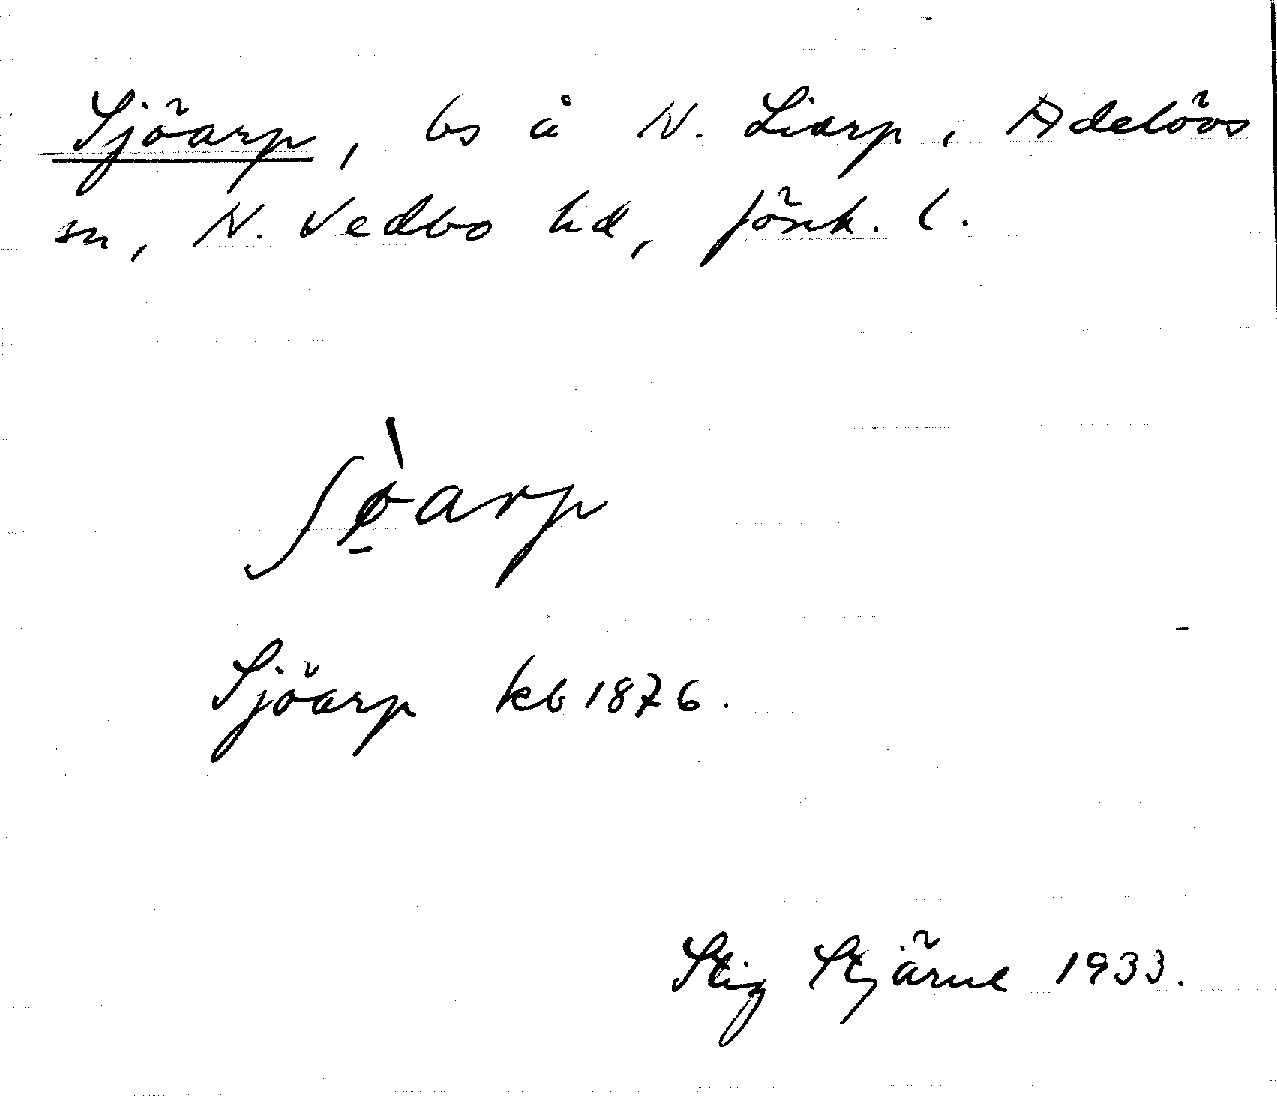 Sjöarp, bs å N. Liarp, Adelövs
sn, N. Vedbo hd, Jönk. l.
ʃø̠̀arp
Sjöarp kb 1876.
Stig Stjärne 1933.